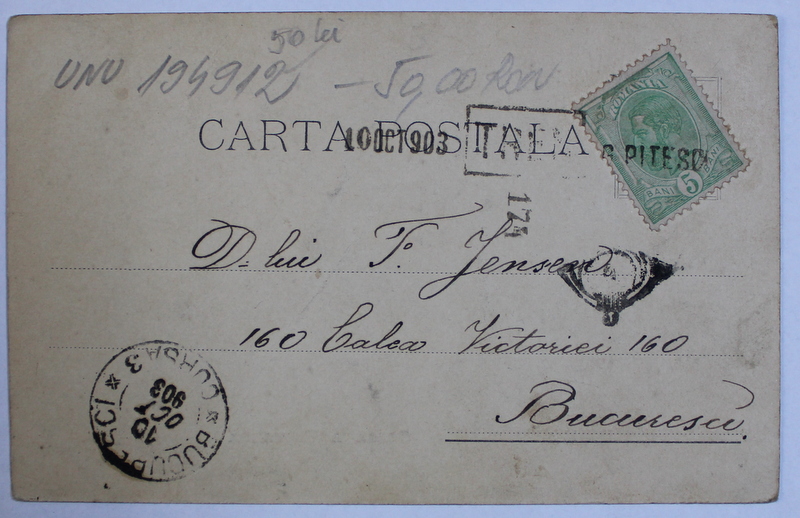 50 lei
UNU 194912 – 59,00 Ron
CARTA POSTALA
10 OCT 903
PITESCI
174
ROMANIA
BANI 5 BANI
D-lui F. Jensen
160 Calea Victoriei 160
Bucuresci
BUCURESCI
CURSA 3
10
OCT
903